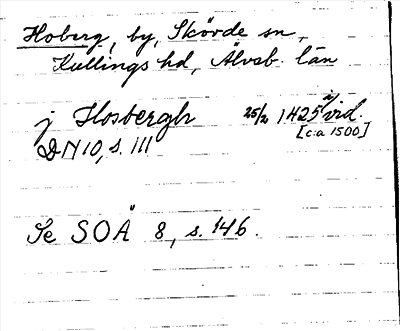 Hoberg, by, Skövde sn,
Kullings hd, Älvsb. län
j Hosbergh 25/2 1425 vid.
[c:a 1500]
DN 10, s. 111
Se SOÄ 8, s. 146.